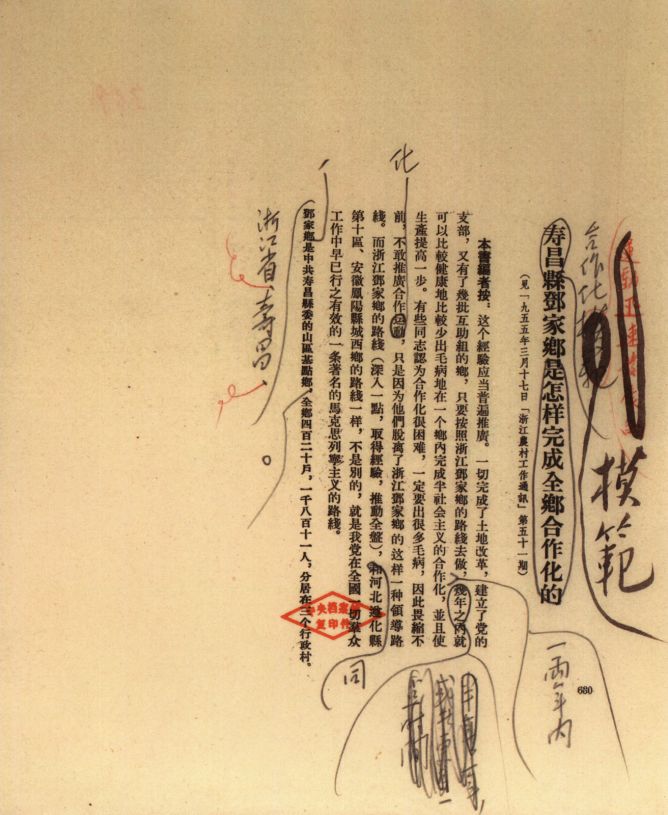 合作化
模範
寿昌縣鄧家鄉是怎样完成全鄉合作化的
(見一九五五年三月十七日「浙江農村工作通訊」第五十一期)
本書編者按:这个經驗应当普遍推廣。一切完成了土地改革,建立了党的
支部,又有了幾批互助組的鄉,只要按照浙江鄧家鄉的路綫去做,幾年之內就
可以比較健康地比較少出毛病地在一个鄉內完成半社会主义的合作化,並且使
生產提高一步。有些同志認为合作化很困难,一定要出很多毛病,因此畏縮不
前,不敢推廣合作运動,只是因为他們脫離了浙江鄧家鄉的这样一种領導路
綫。而浙江鄧家鄉的路綫(深入一點,取得經驗,推動全盤),和河北遵化縣
第十區、安徽鳳陽縣城西鄉的路綫一样,不是別的,就是我党在全國一切羣众
工作中早已行之有效的一条著名的馬克思列寧主义的路綫。
鄧家鄉是中共寿昌縣委的山區基點鄉,全鄉四百二十戶,一千八百十一人,分居在三个行政村。
化
浙江省、壽昌、
同
一兩年內
680
中央档案館
复印件